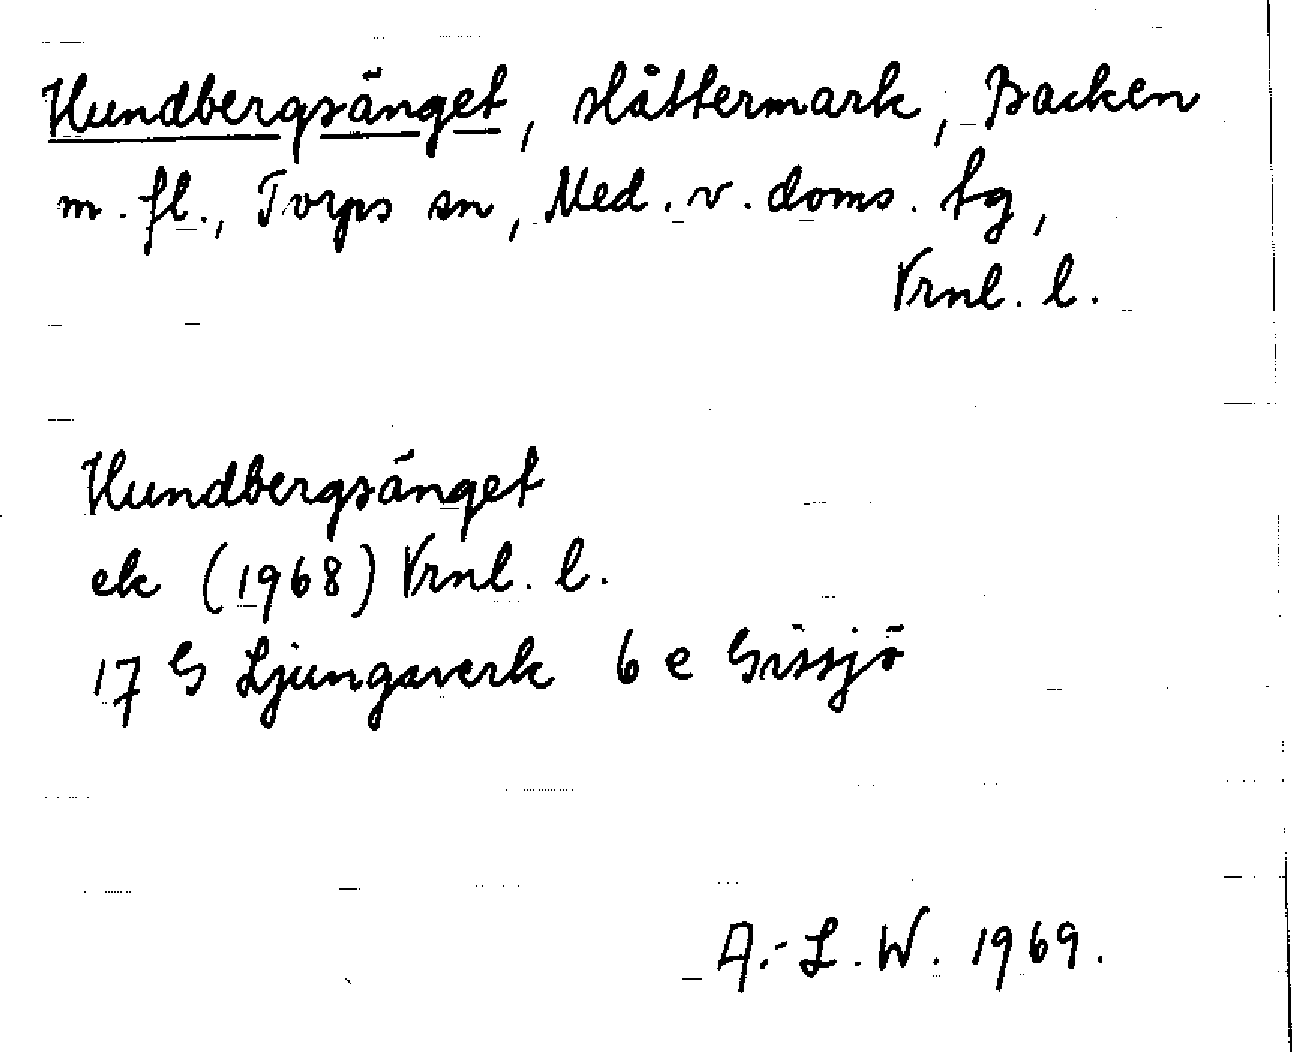 Hundbergsänget, slåttermark, Backen
m. fl., Torps sn, Med. v. doms. tg,
Vrnl. l.
Hundbergsänget
ek (1968) Vrnl. l.
17 G Ljungaverk 6 e Gissjö
A.-L. W. 1969.